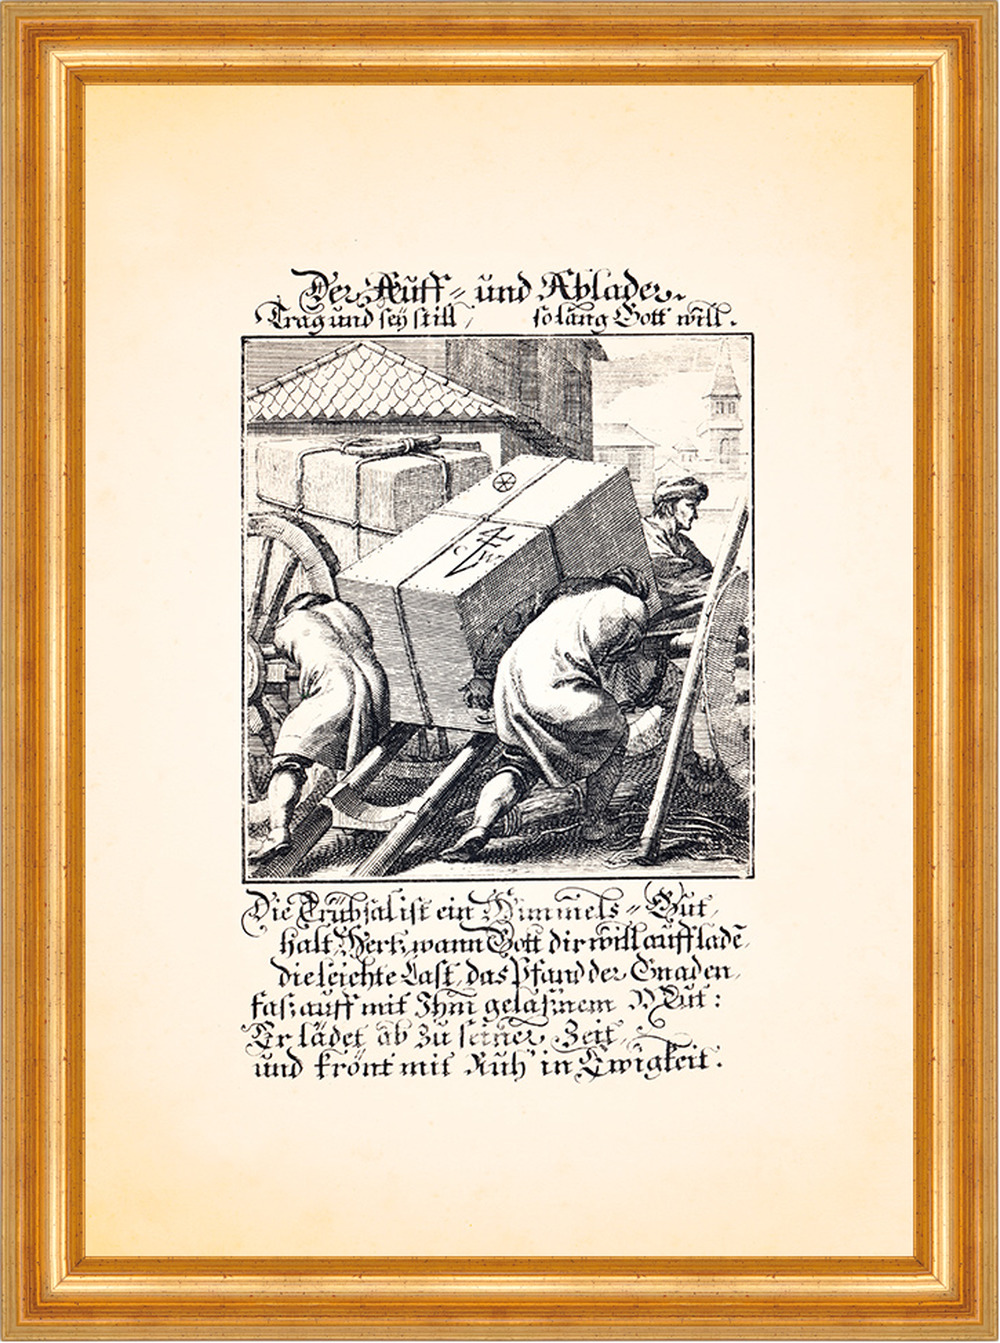 Der Auff- und Ablader.
Trag und seÿ still, so lang Gott will.
C
Die Trübsal ist ein Himmels-Gut,
halt Herk, wann Gott dir will aufflade͂,
die leichte Last, das Pfand der Gnaden,
fass auff mit Ihm gelassnem Mut:
Er lädet ab zu seiner Zeit,
und krönt mit Ruh in Ewigkeit.